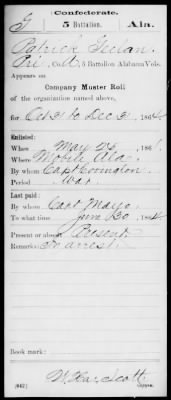 Confederate.
G 5 Battalion. Ala.
Patrick
Pvt, Co. A, 5 Battalion Alabama Vols.
Appears on
Company Muster Roll
of the organization named above,
for Oct 31 to Dec 31, 1864.
Enlisted:
When May 26, 186
Where Mobile Ala.
By whom Capt Covington
Period War
Last paid:
By whom Capt Mayo
To what time June 30, 1864.
Present or absent Present
Remarks: In arrest.
Book mark:
Scott
(642) Copyist.